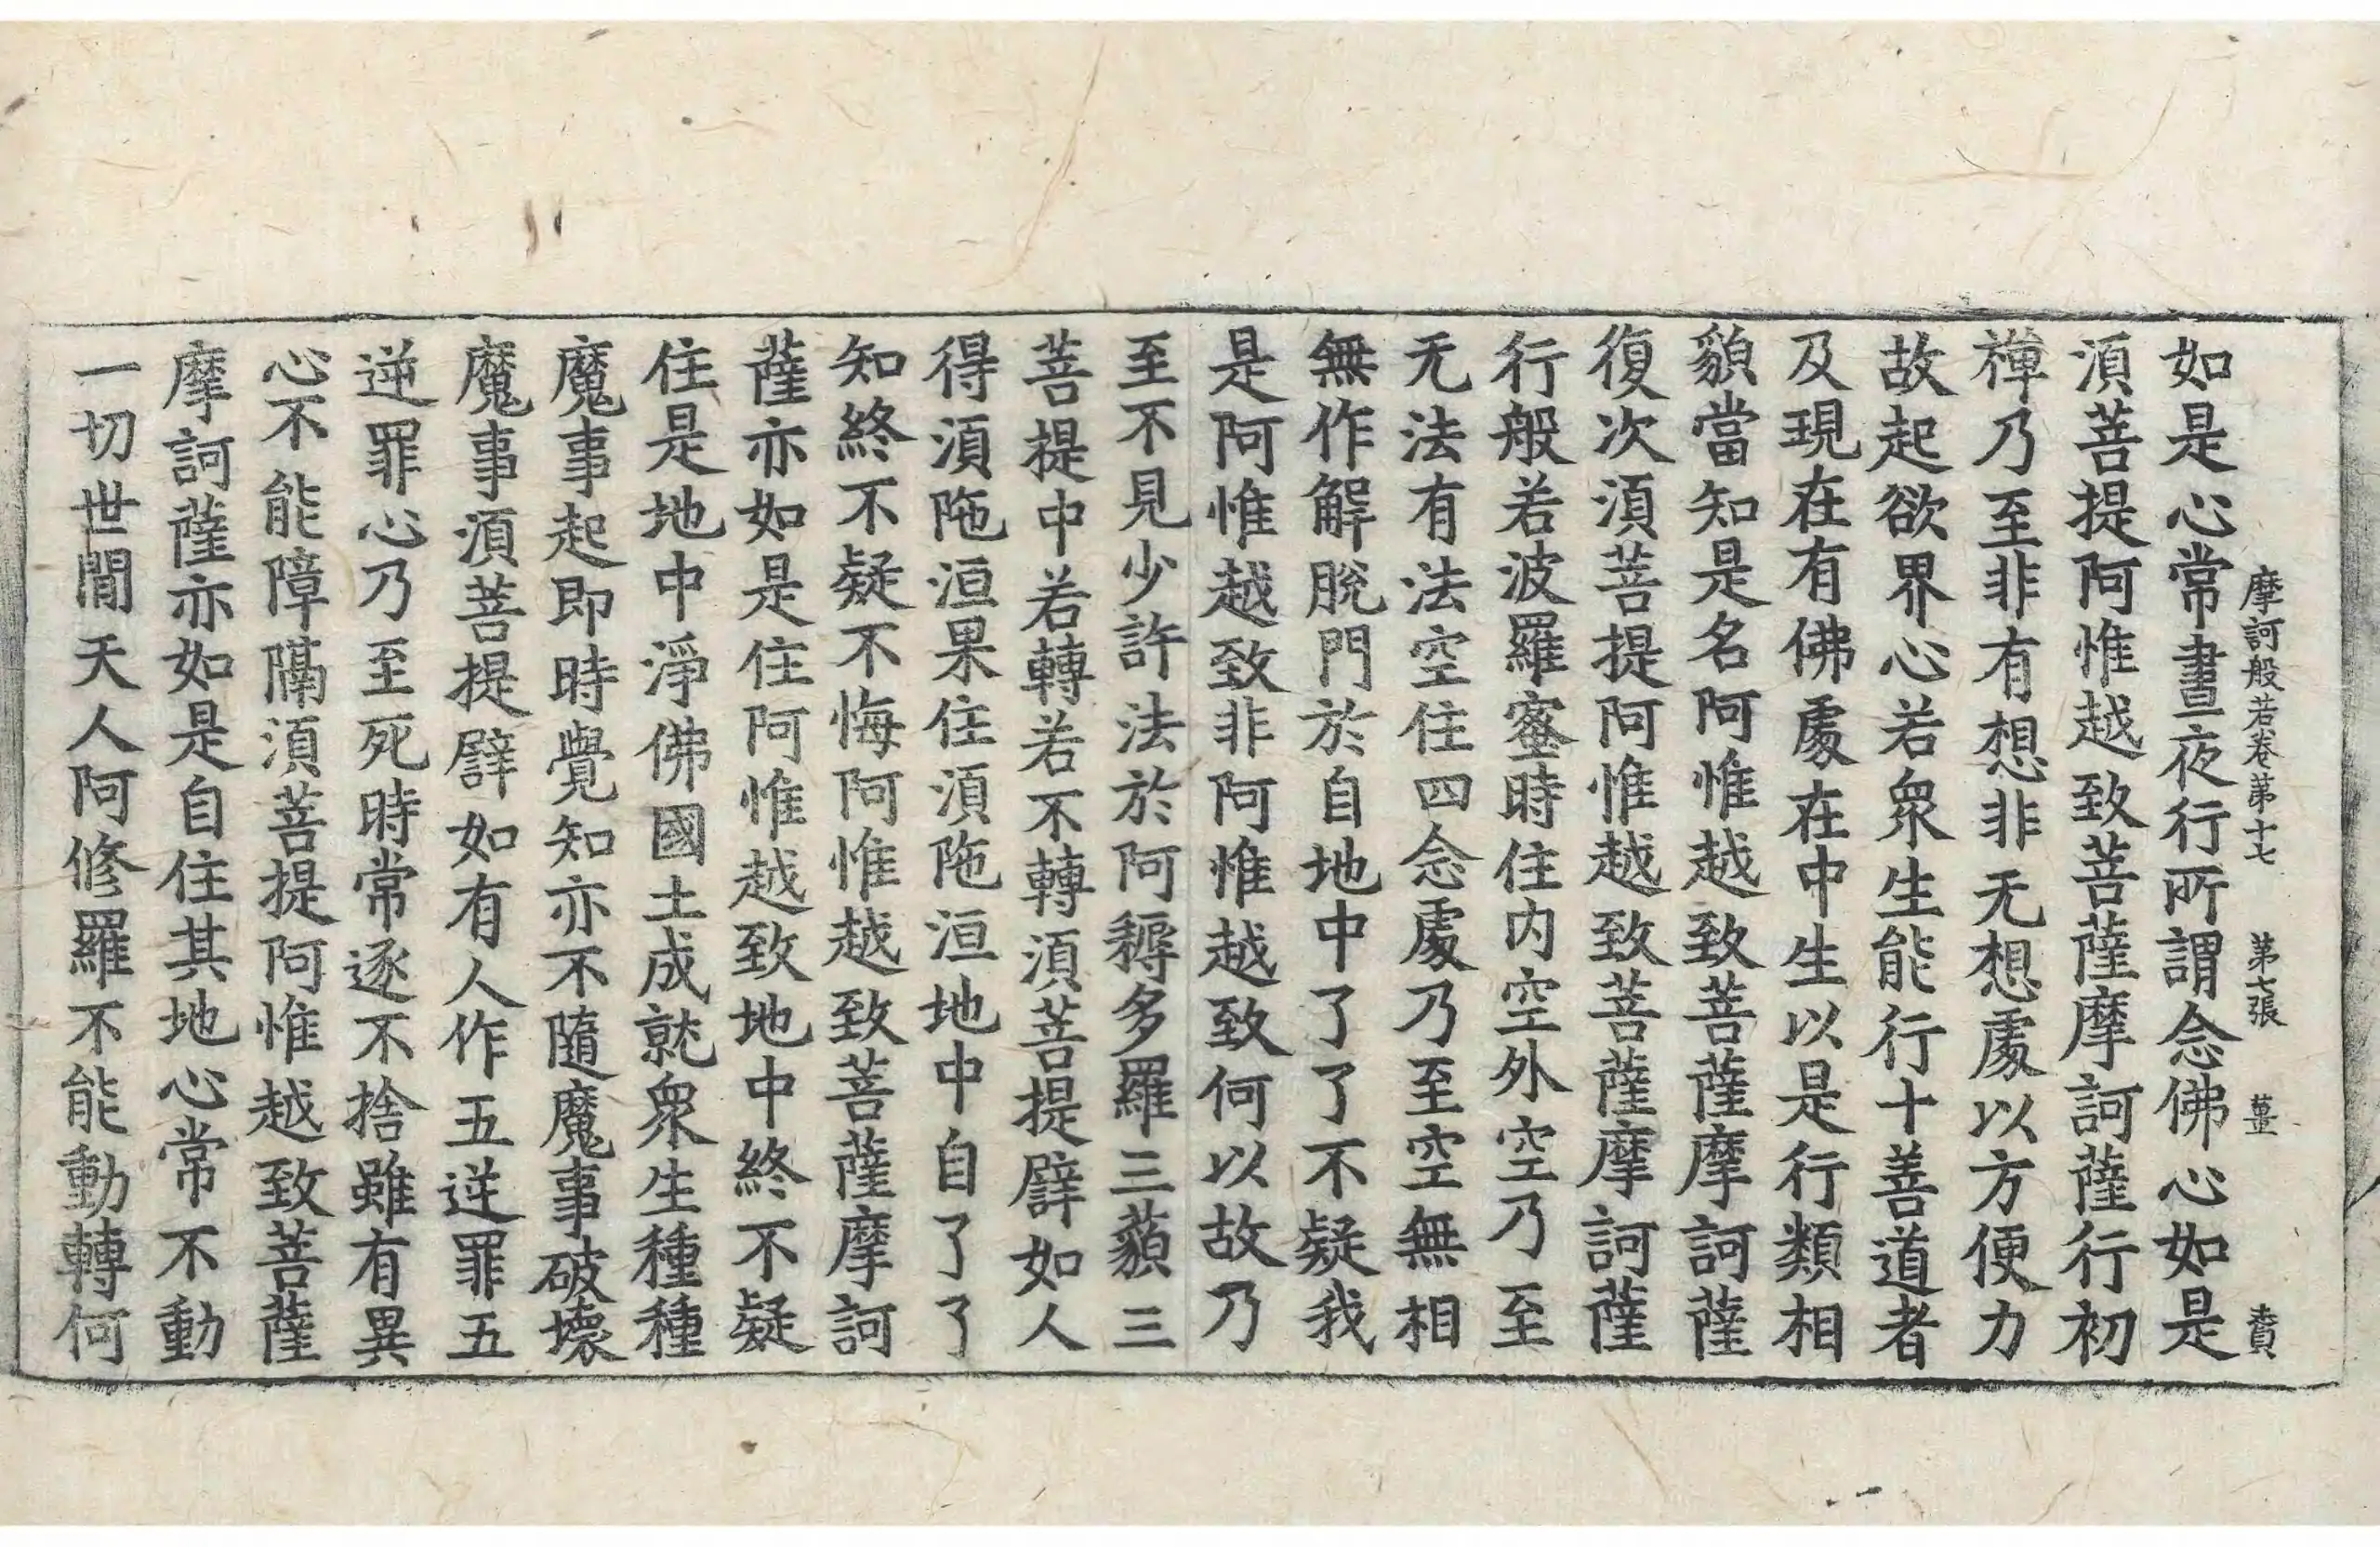 摩訶般若卷第十七 第七張 薑 賣
如是心常晝夜行所謂念佛心如是
湏菩提阿惟越致菩薩摩訶薩行初
禅乃至非有想非无想處以方便力
故起欲界心若衆生能行十善道者
及現在有佛處在中生以是行類相
貌當知是名阿惟越致菩薩摩訶薩
復次湏菩提阿惟越致菩薩摩訶薩
行般若波羅蜜時住内空外空乃至
无法有法空住四念處乃至空無相
無作解脫門於自地中了了不疑我
是阿惟越致非阿惟越致何以故乃
至不見少許法於阿耨多羅三藐三
菩提中若轉若不轉湏菩提譬如人
得湏陁洹果住湏陁洹地中自了了
知終不疑不悔阿惟越致菩薩摩訶
薩亦如是住阿惟越致地中終不疑
住是地中淨佛國土成就衆生種種
魔事起即時覺知亦不隨魔事破壞
魔事湏菩提譬如有人作五逆罪五
逆罪心乃至死時常逐不捨雖有異
心不能障隔湏菩提阿惟越致菩薩
摩訶薩亦如是自住其地心常不動
一切世閒天人阿修羅不能動轉何